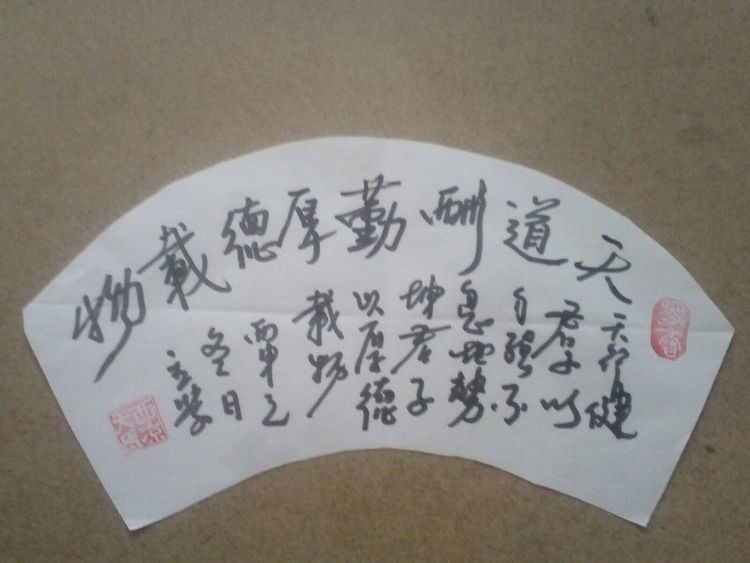 天道酬勤厚德載物
天行健
君子以
自强不
息地勢
坤君子
以厚德
載物
冬日